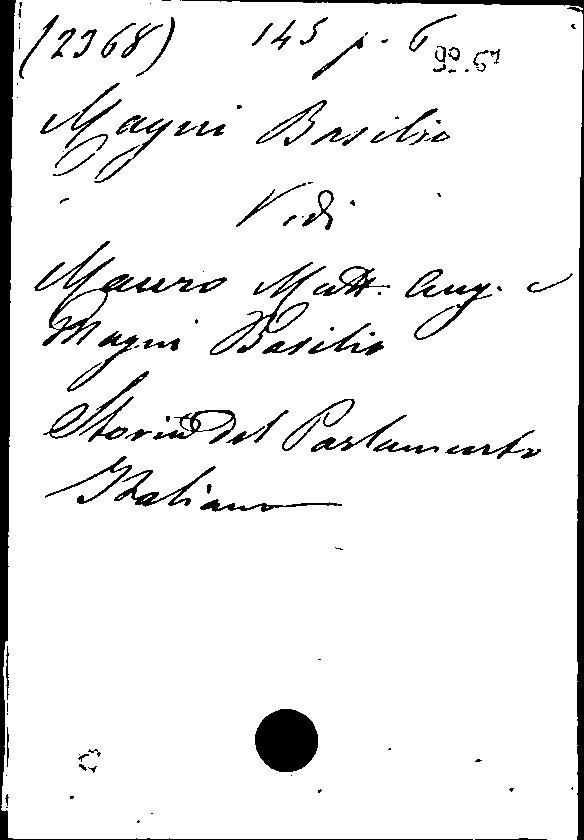 (2368) 145 p. 6
Magni Basilio
Vedi
Mauro Matt. Aug. e
Magni Basilio
Storia del Parlamento
Italiano